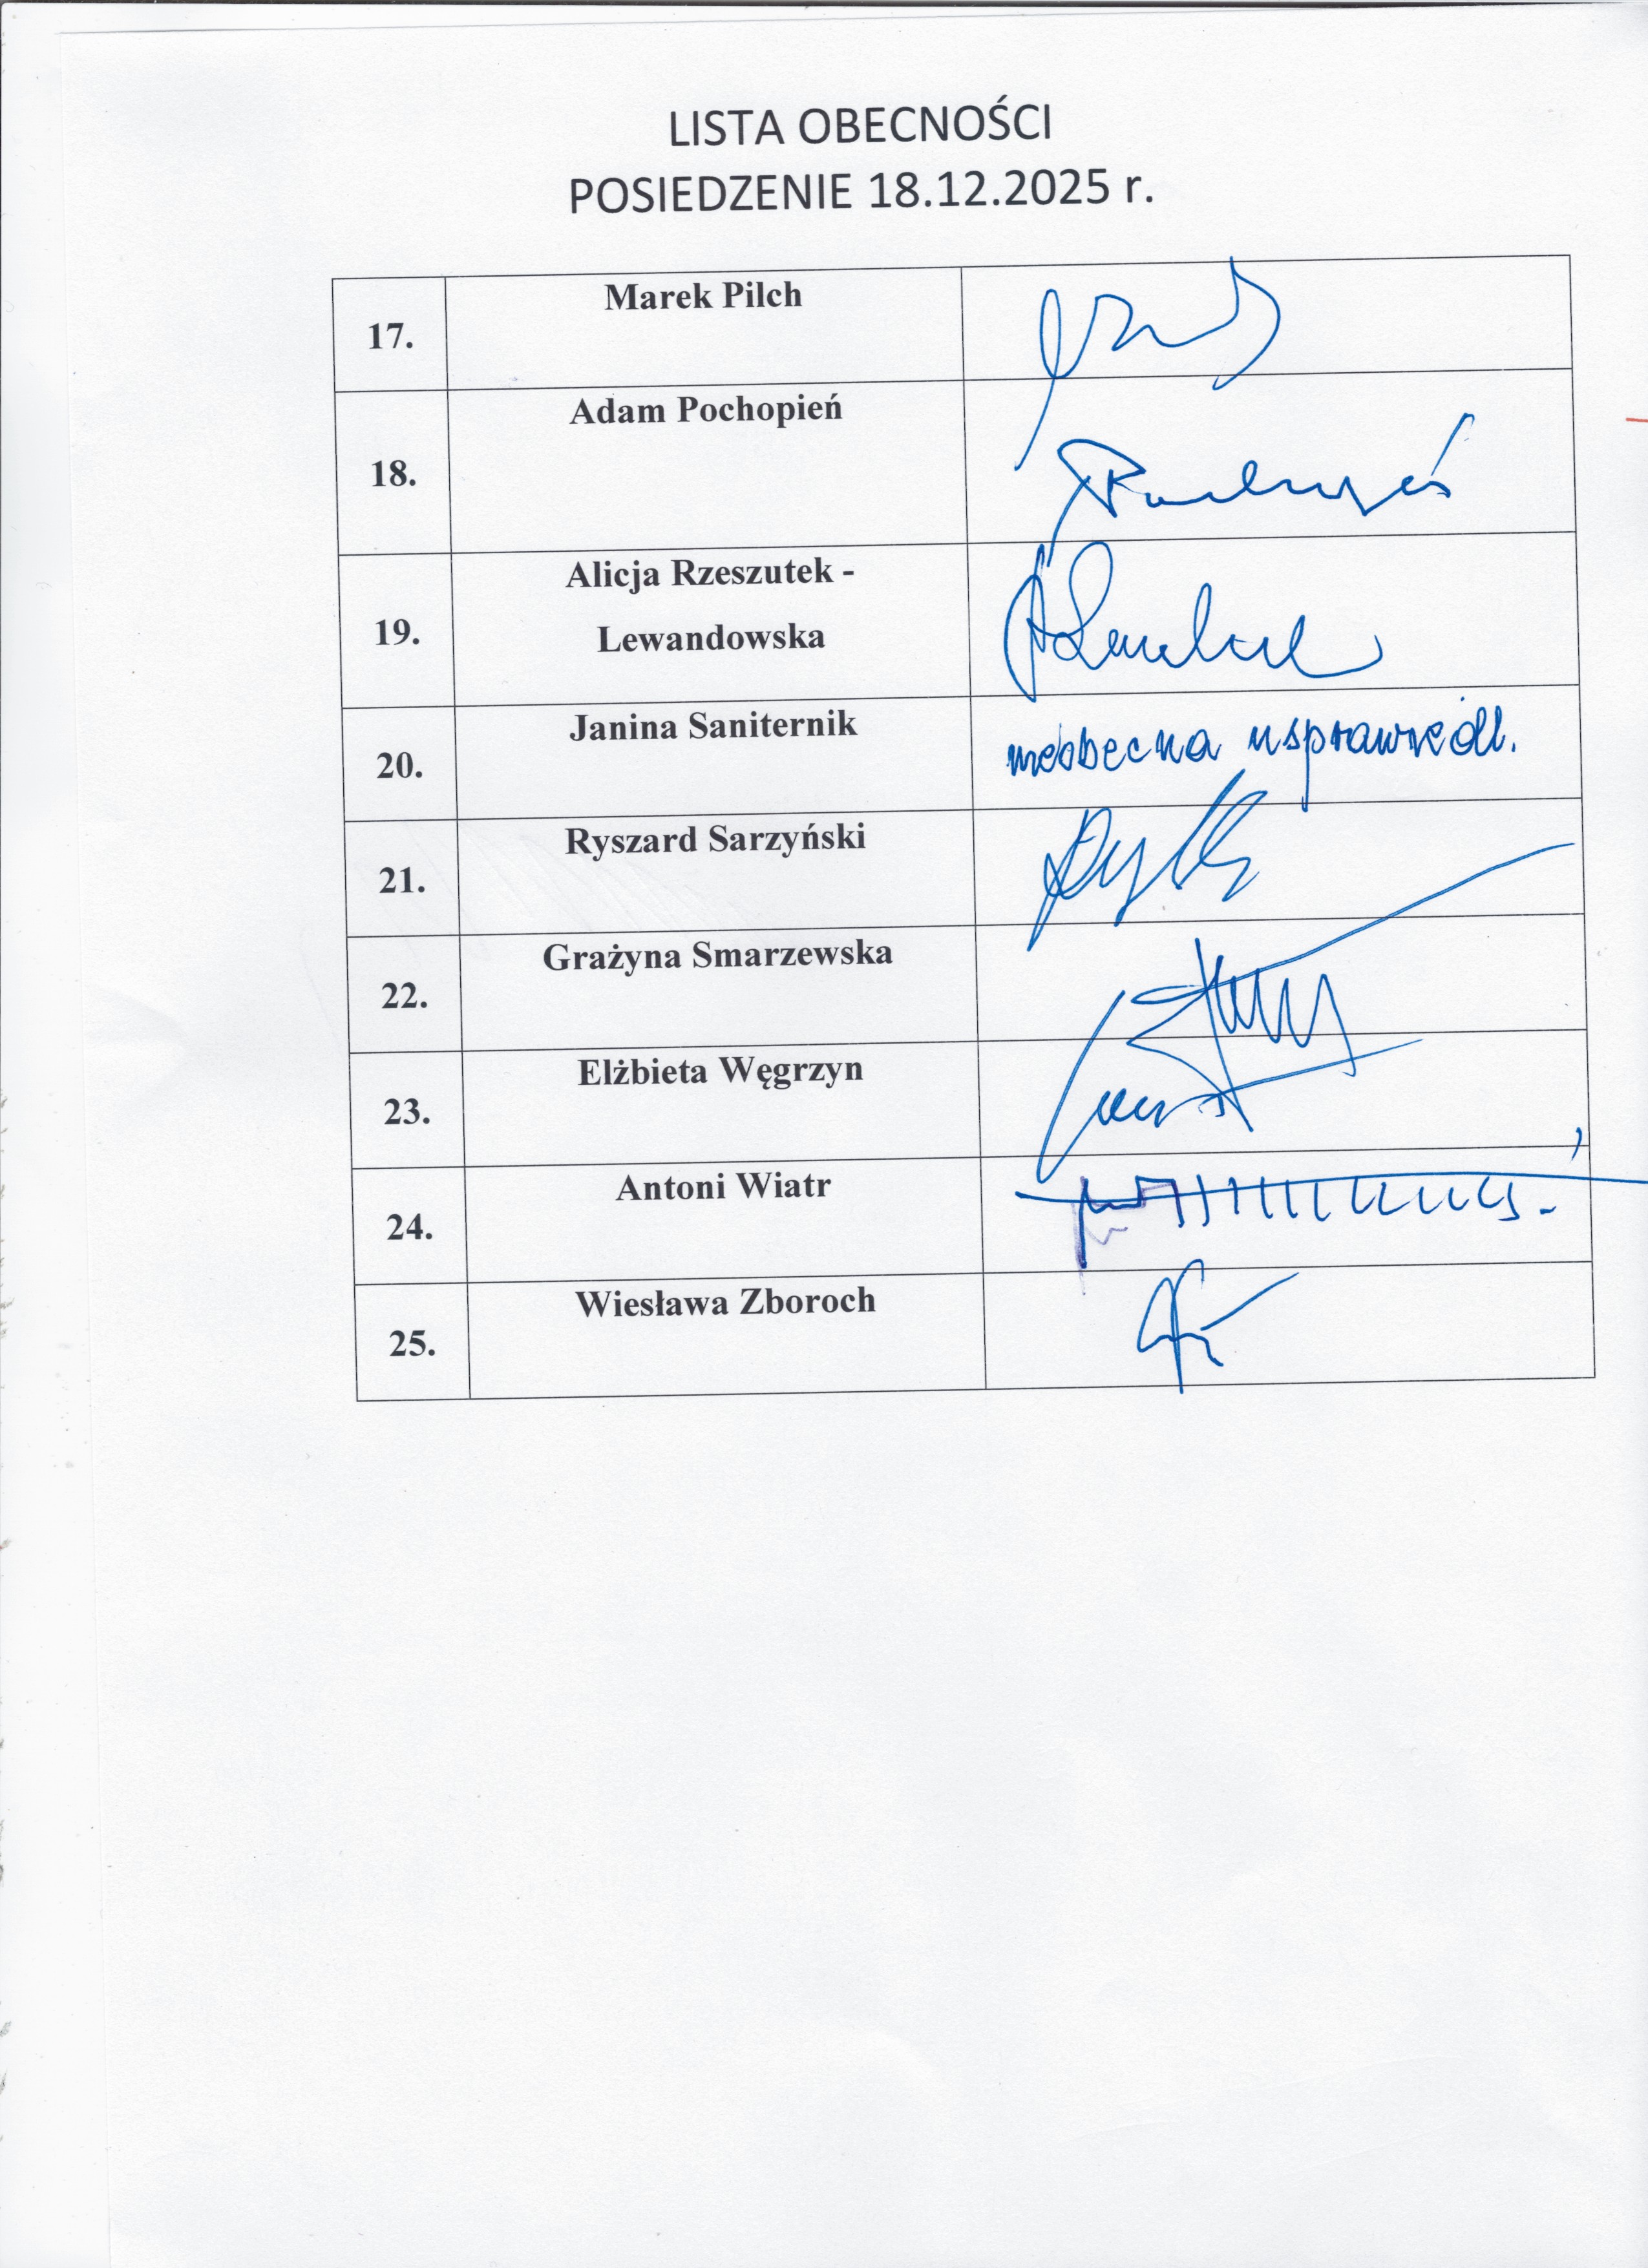 LISTA OBECNOŚCI
POSIEDZENIE 18.12.2025 r.
17. Marek Pilch
18. Adam Pochopień
19. Alicja Rzeszutek -
Lewandowska
20. Janina Saniternik nieobecna usprawiedl.
21. Ryszard Sarzyński
22. Grażyna Smarzewska
23. Elżbieta Węgrzyn
24. Antoni Wiatr
25. Wiesława Zboroch